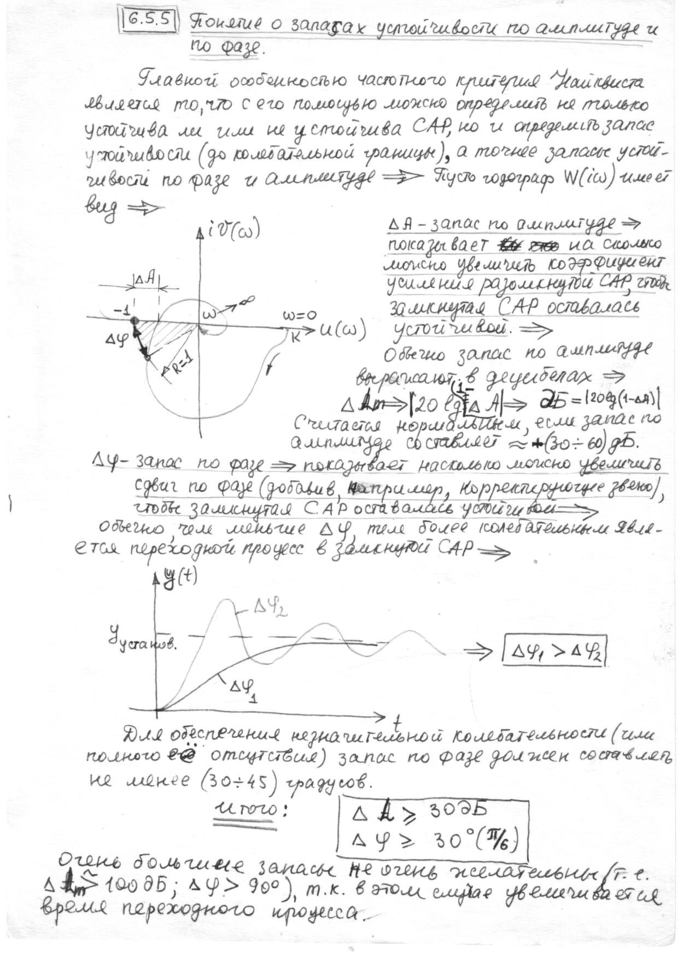 6.5.5 Понятие о запасах устойчивости по амплитуде и
по фазе.
Главной особенностью частотного критерия Найквиста
является то, что с его помощью можно определить не только
устойчива ли или не устойчива САР, но и определить запас
устойчивости (до колебательной границы), а точнее запасы устой-
чивости по фазе и амплитуде ⇒ Пусть годограф W(iω) имеет
вид ⇒
iV(ω)
ΔA
-1
ω→∞
ω=0
K
u(ω)
Δφ
R=1
ΔA - запас по амплитуде ⇒
показывает на сколько
можно увеличить коэффициент
усиления разомкнутой САР, чтобы
замкнутая САР оставалась
устойчивой. ⇒
Обычно запас по амплитуде
выражают в децибелах ⇒
ΔLm ⇒ |20 lg(1-ΔA)| ⇒ дБ = |20lg(1-ΔA)|
Считается нормальным, если запас по
амплитуде составляет ≈ (30÷60) дБ.
Δφ - запас по фазе ⇒ показывает насколько можно увеличить
сдвиг по фазе (добавив, например, корректирующие звено),
чтобы замкнутая САР оставалась устойчивой ⇒
Обычно, чем меньше Δφ, тем более колебательным явля-
ется переходной процесс в замкнутой САР ⇒
y(t)
Δφ₂
yустанов.
Δφ₁
t
⇒ Δφ₁ > Δφ₂
Для обеспечения незначительной колебательности (или
полного её отсутствия) запас по фазе должен составлять
не менее (30÷45) градусов.
Итого:
ΔL ≥ 30дБ
Δφ ≥ 30° (π/6)
Очень большие запасы не очень желательны (т.е.
ΔLm > 100дБ; Δφ > 90°), т.к. в этом случае увеличивается
время переходного процесса.